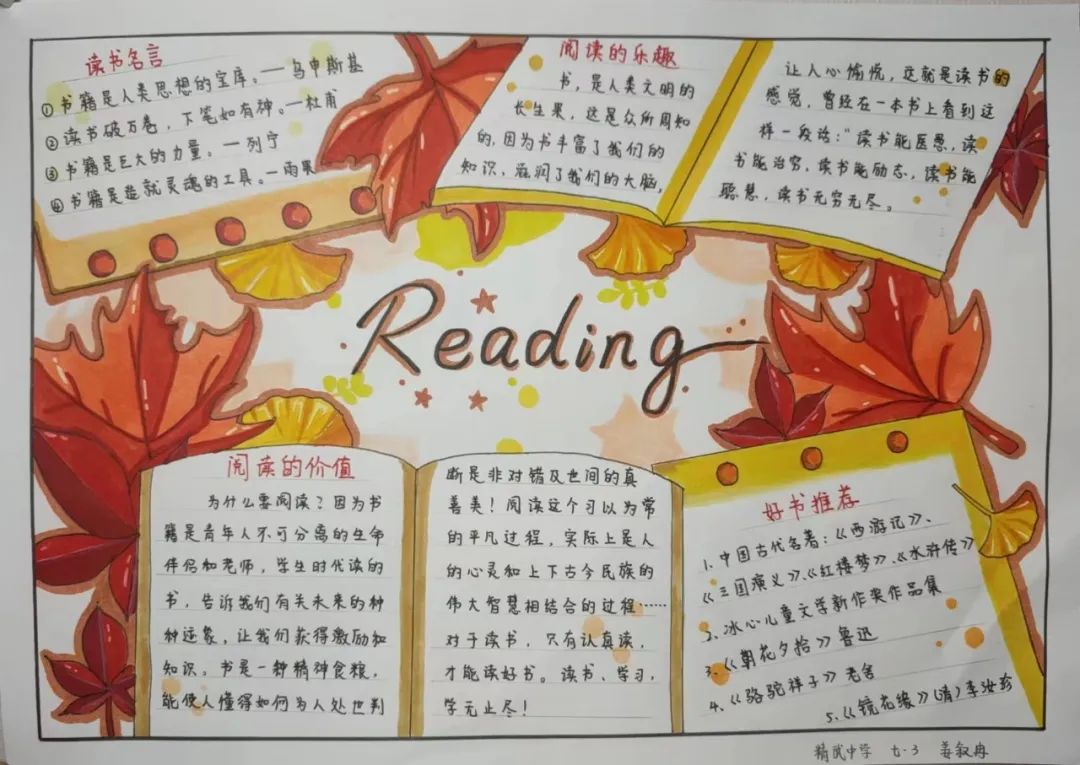 读书名言
①书籍是人类思想的宝库。——乌申斯基
②读书破万卷，下笔如有神。—杜甫
③书籍是巨大的力量。—列宁
④书籍是造就灵魂的工具。—雨果
阅读的乐趣
书，是人类文明的
长生果，这是众所周知
的，因为书丰富了我们的
知识，滋润了我们的大脑，
让人心愉悦，这就是读书的
感觉，曾经在一本书上看到这
样一段话：“读书能医愚，读
书能治穷，读书能励志，读书能
聪慧，读书无穷无尽。
Reading
阅读的价值
为什么要阅读？因为书
籍是青年人不可分离的生命
伴侣和老师，学生时代读的
书，告诉我们有关未来的种
种迹象，让我们获得激励和
知识。书是一种精神食粮，
能使人懂得如何为人处世判
断是非对错及世间的真
善美！阅读这个习以为常
的平凡过程，实际上是人
的心灵和上下古今民族的
伟大智慧相结合的过程……
对于读书，只有认真读，
才能读好书。读书、学习，
学无止尽！
好书推荐
1.中国古代名著：《西游记》、
《三国演义》、《红楼梦》、《水浒传》
2.冰心儿童文学新作奖作品集
3.《朝花夕拾》鲁迅
4.《骆驼祥子》老舍
5.《镜花缘》（清）李汝珍
精武中学 七·3 姜叙冉